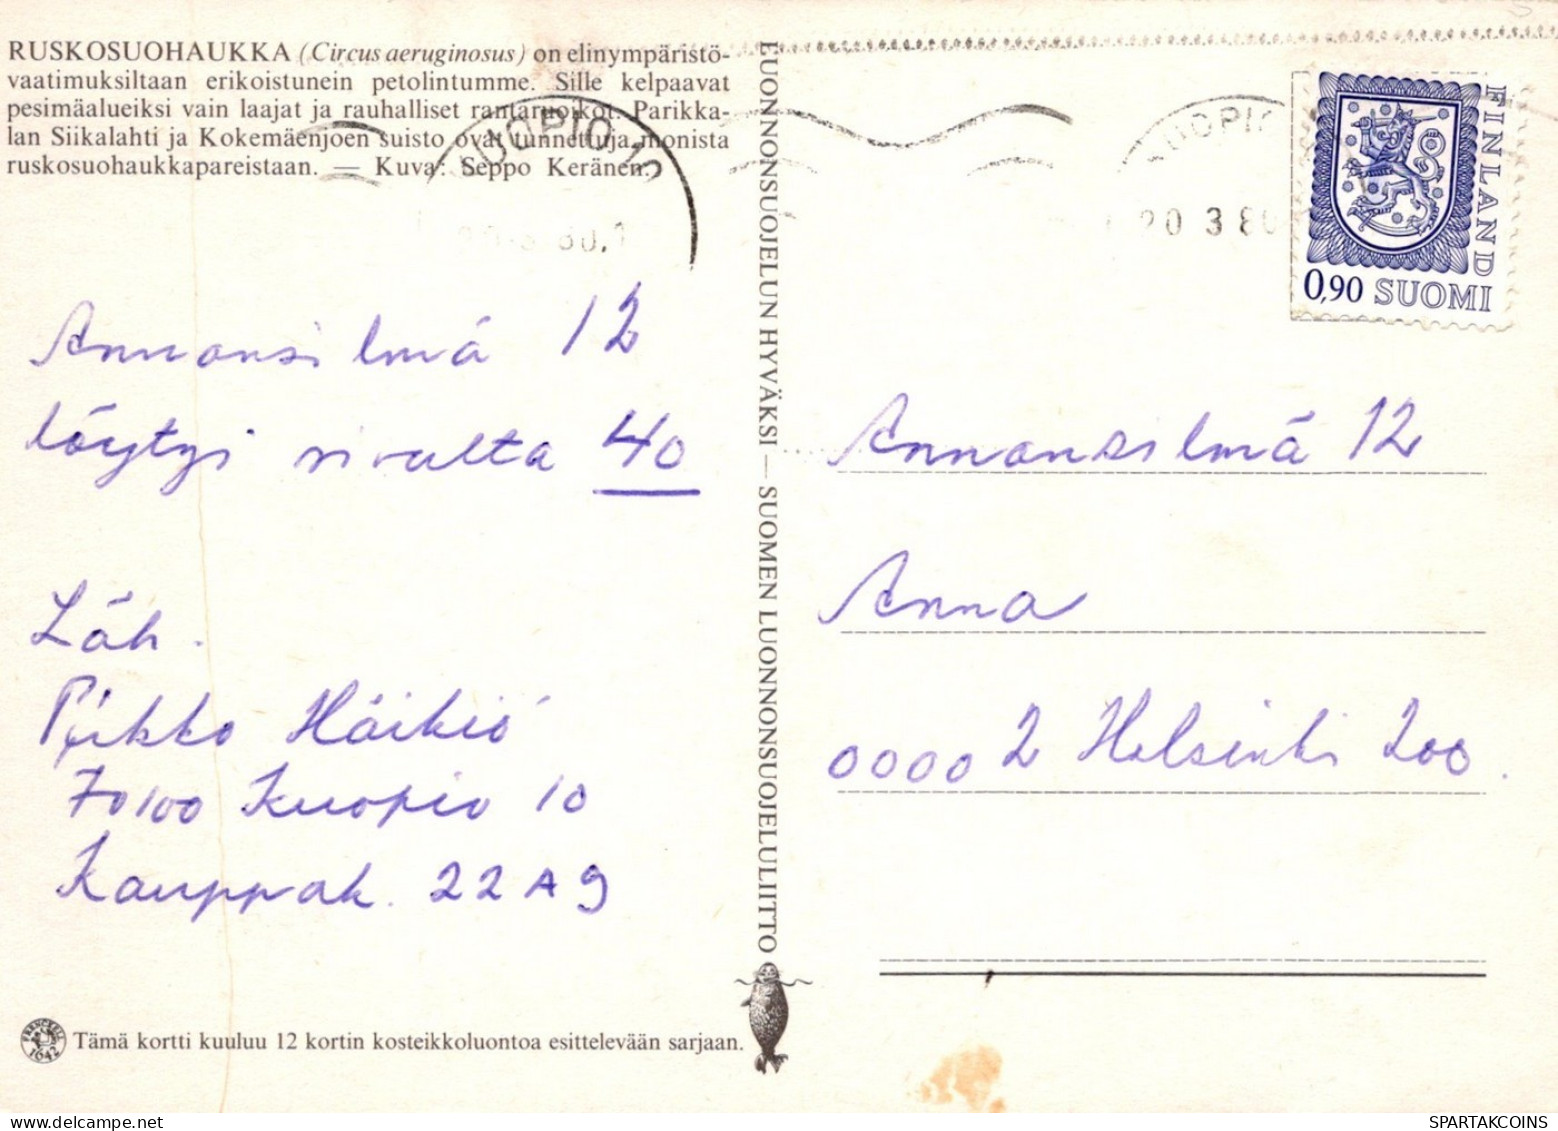 RUSKOSUOHAUKKA (Circus aeruginosus) on elinympäristö-
vaatimuksiltaan erikoistunein petolintumme. Sille kelpaavat
pesimäalueiksi vain laajat ja rauhalliset rantaruoikot. Parikka-
lan Siikalahti ja Kokemäenjoen suisto ovat tunnettuja monista
ruskosuohaukkapareistaan. — Kuva: Seppo Keränen.
KUOPIO 10
Annansilmä 12
löytyi sivulta 40
Läh.
Pirkko Häikiö
70100 Kuopio 10
Kauppak. 22 A 9
FRENCKELL
1642
Tämä kortti kuuluu 12 kortin kosteikkoluontoa esittelevään sarjaan.
LUONNONSUOJELUN HYVÄKSI — SUOMEN LUONNONSUOJELULIITTO
KUOPIO
20 3 80
FINLAND
0,90 SUOMI
Annansilmä 12
Anna
00002 Helsinki 200.
SPARTAKCOINS